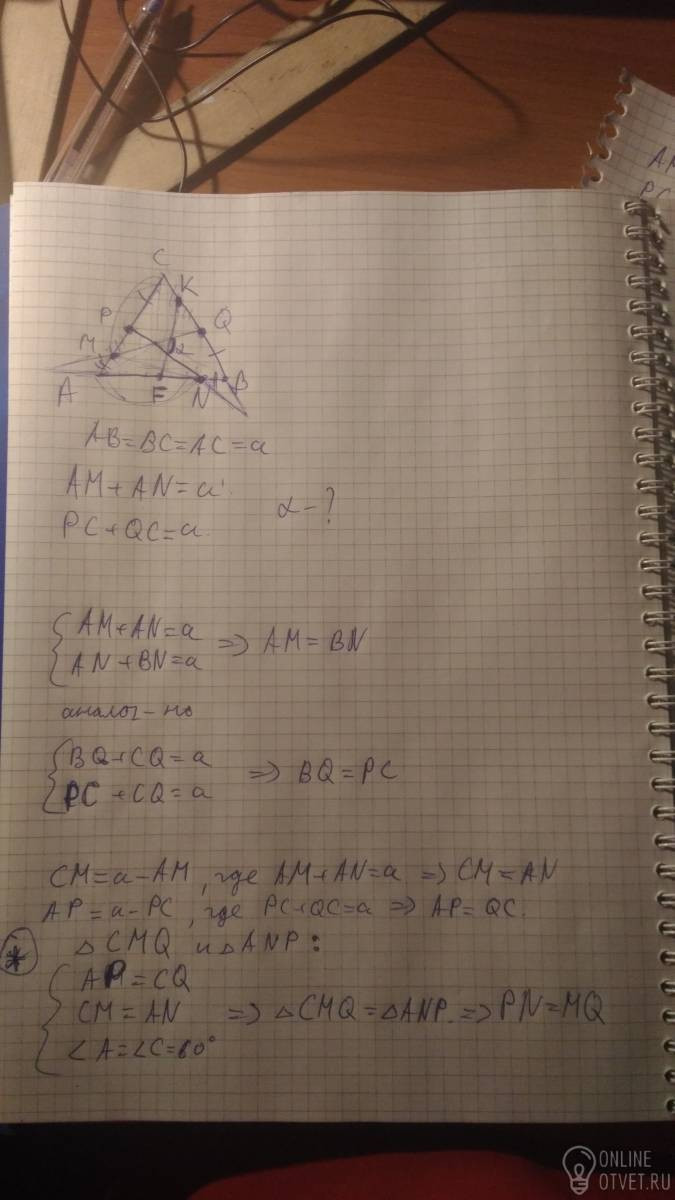 C
K
P
Q
M
α
A
F
N
B
AB=BC=AC=a
AM+AN=a
PC+QC=a.
α-?
{ AM+AN=a
AN+BN=a => AM=BN
аналог-но
{ BQ+CQ=a
PC+CQ=a => BQ=PC
CM=a-AM, где AM+AN=a => CM=AN
AP=a-PC, где PC+QC=a => AP=QC.
* △CMQ и △ANP:
{ AP=CQ
CM=AN => △CMQ=△ANP. => PN=MQ
∠A=∠C=60°
ONLINE
OTVET.RU